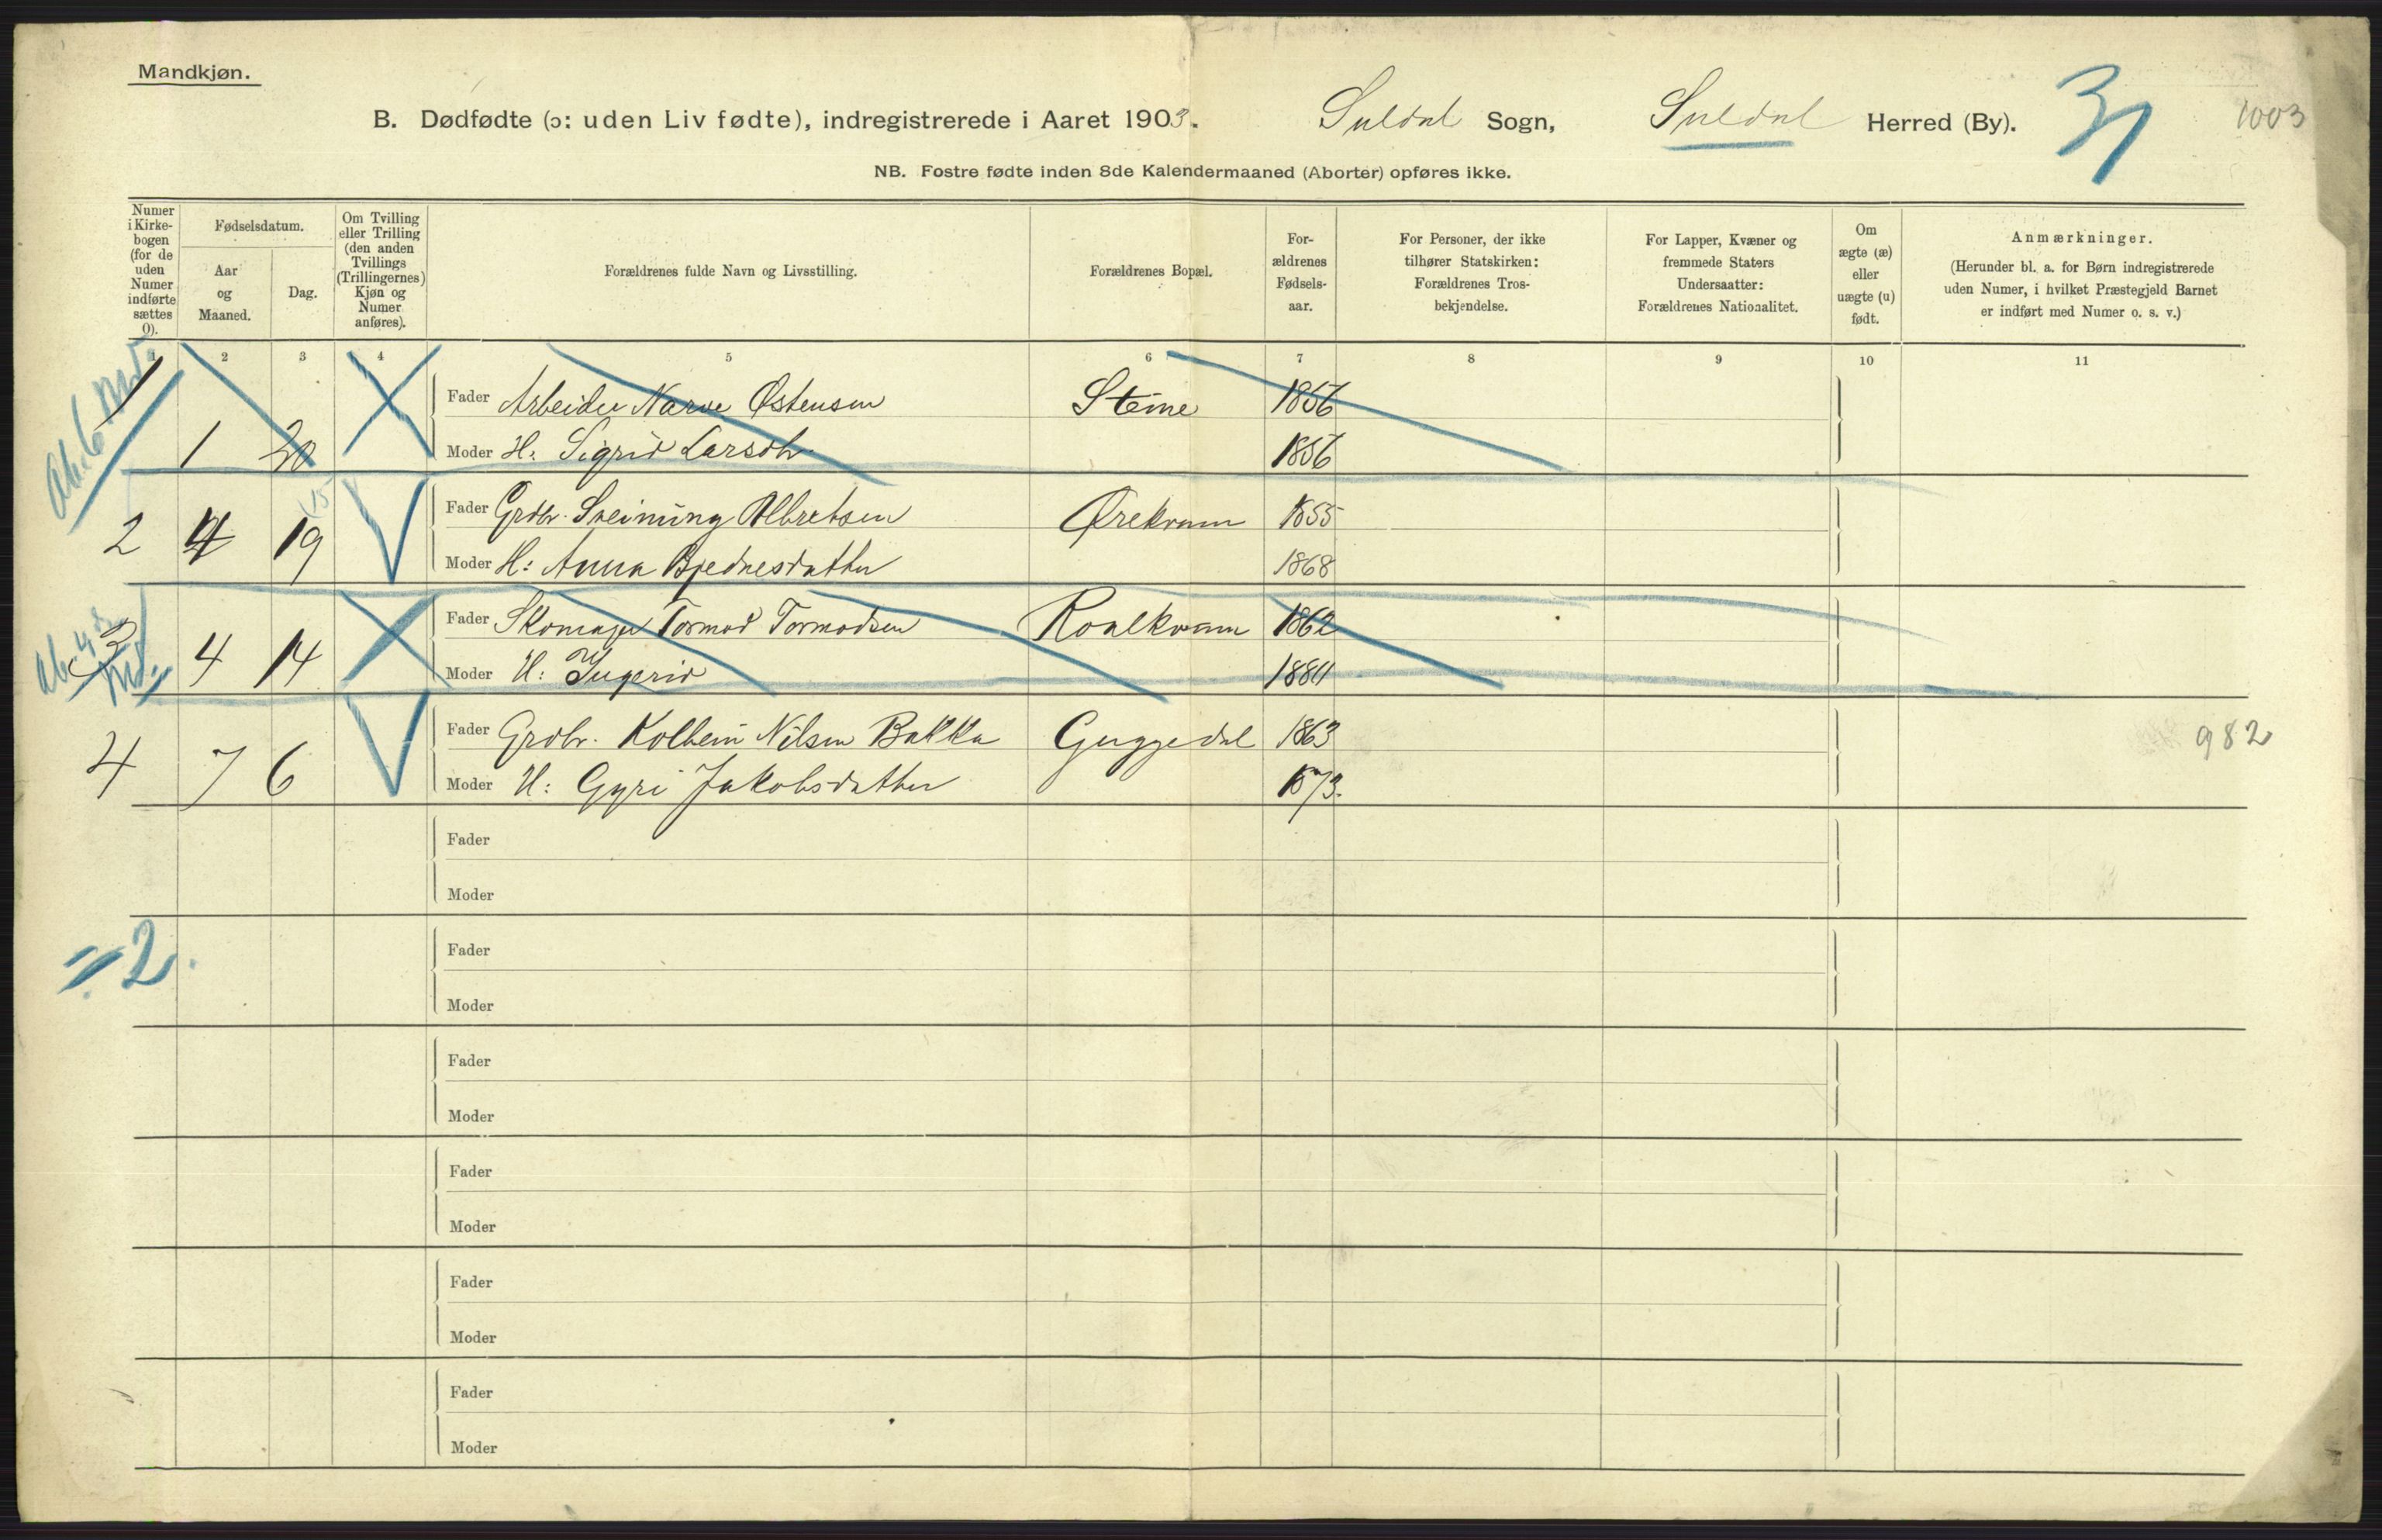 Mandkjøn.
B. Dødfødte (ɔ: uden Liv fødte), indregistrerede i Aaret 1903. Suldal Sogn, Suldal Herred (By).
1003
NB. Fostre fødte inden 8de Kalendermaaned (Aborter) opføres ikke.
Numer i Kirke-bogen (for de uden Numer indførte sættes 0).
Fødselsdatum.
Aar og Maaned.
Dag.
Om Tvilling eller Trilling (den anden Tvillings (Trillingernes) Kjøn og Numer anføres).
Forældrenes fulde Navn og Livsstilling.
Forældrenes Bopæl.
For-ældrenes Fødsels-aar.
For Personer, der ikke tilhører Statskirken: Forældrenes Tros-bekjendelse.
For Lapper, Kvæner og fremmede Staters Undersaatter: Forældrenes Nationalitet.
Om ægte (æ) eller uægte (u) født.
Anmærkninger.
(Herunder bl. a. for Børn indregistrerede uden Numer, i hvilket Præstegjeld Barnet er indført med Numer o. s. v.)
1 2 3 4 5 6 7 8 9 10 11
Ab. 6 Md.
1 1 20 Fader Arbeider Narve Østensen Steine 1856
Moder H: Sigrid Larsdtr 1856
(15
2 4 19 Fader Grdbr. Sveinung Albretsen Ørekvam 1855
Moder H: Anna Bjednesdatter 1868
Ab. 4 Md.
3 4 14 Fader Skomager Tormod Tormodsen Roalkvam 1862
Moder H: Ingerid 1884
4 7 6 Fader Grdbr. Kolbein Nilsen Bakka Guggedal 1863 982
Moder H: Gyri Jakobsdatter 1873.
Fader
Moder
= 2.
Fader
Moder
Fader
Moder
Fader
Moder
Fader
Moder
Fader
Moder